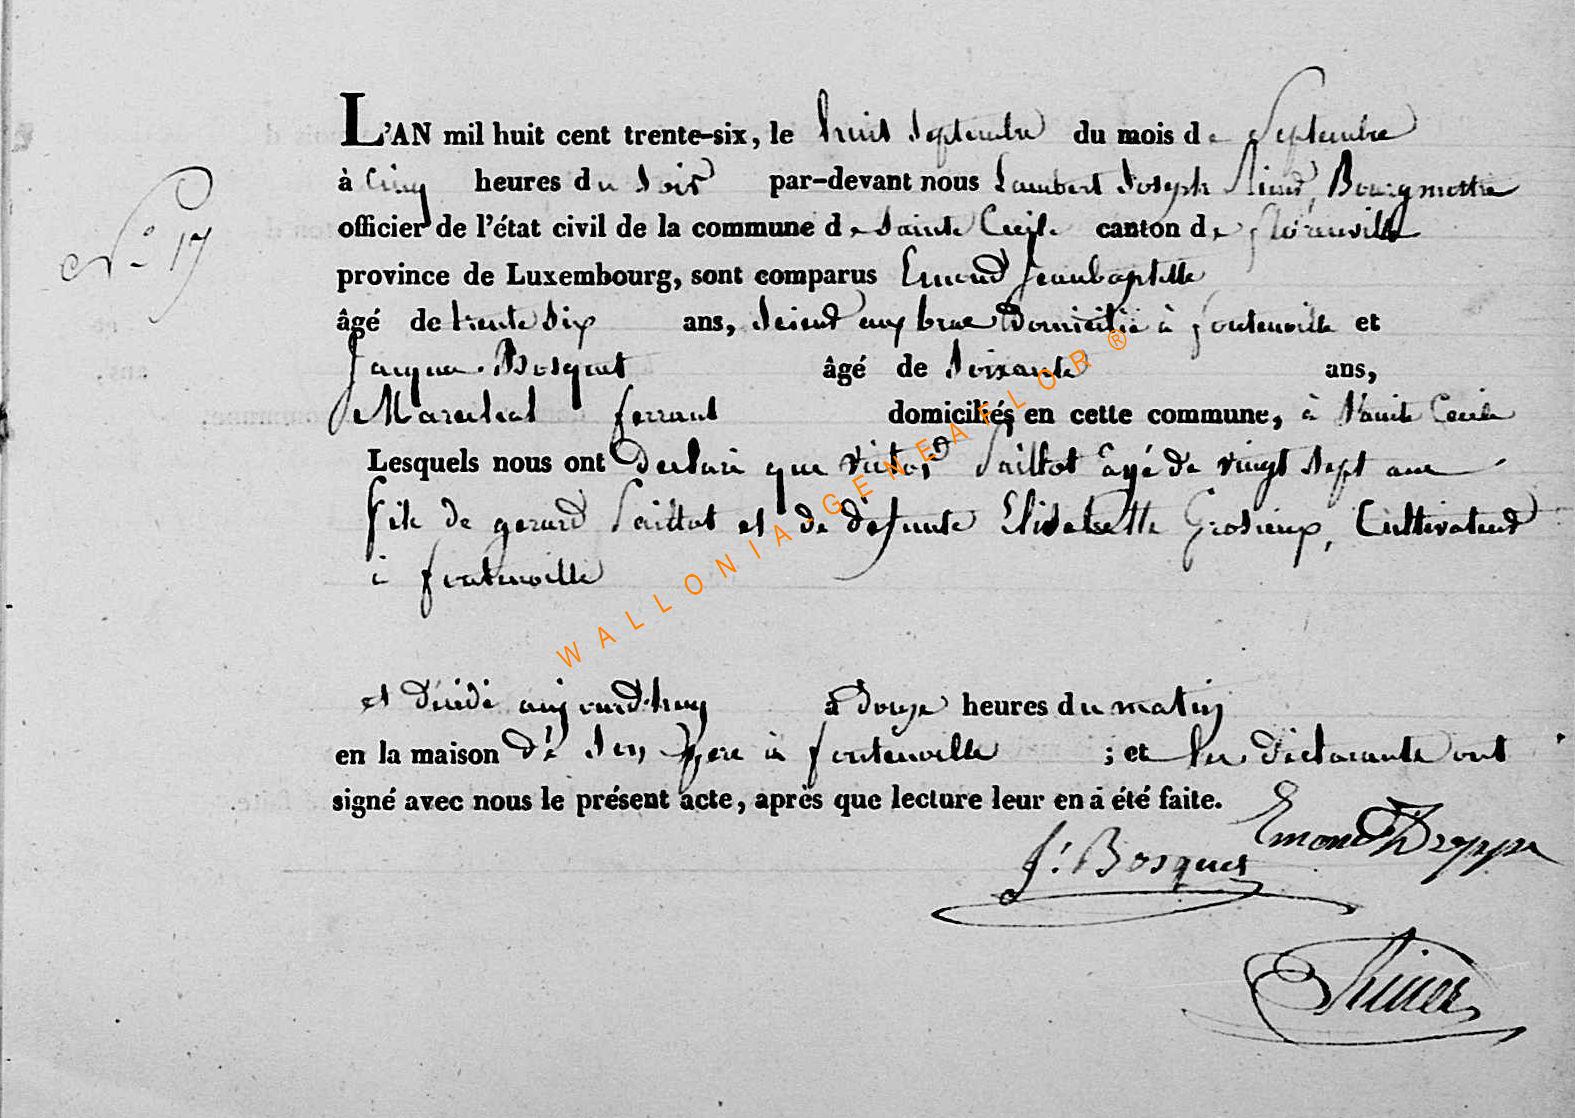 N° 17
L'AN mil huit cent trente-six, le huit Septembre du mois de Septembre
à Cinq heures du Soir par-devant nous Lambert Joseph Bourgmestre
officier de l'état civil de la commune de Sainte Cecile canton de florenville
province de Luxembourg, sont comparus Emond Jeanbaptiste
âgé de trente Six ans, Scieur aux bras Domicilié à fontenoille et
Jacque Bosquet âgé de Soixante ans,
Marechal ferrant domiciliés en cette commune, à Sainte Cecile
Lesquels nous ont Declaré que Victor Paillot agé de vingt Sept ans
fils de gerard Paillot et de défunte Elisabette Grosieux, Cultivateur
à fontenoille
et Décédé aujourd'huy à Douze heures du matin
en la maison de Son Pere à fontenoille ; et les déclarants ont
signé avec nous le présent acte, après que lecture leur en a été faite.
J. Bosquet Emond
WALLONIA-GENEAFLOR ®